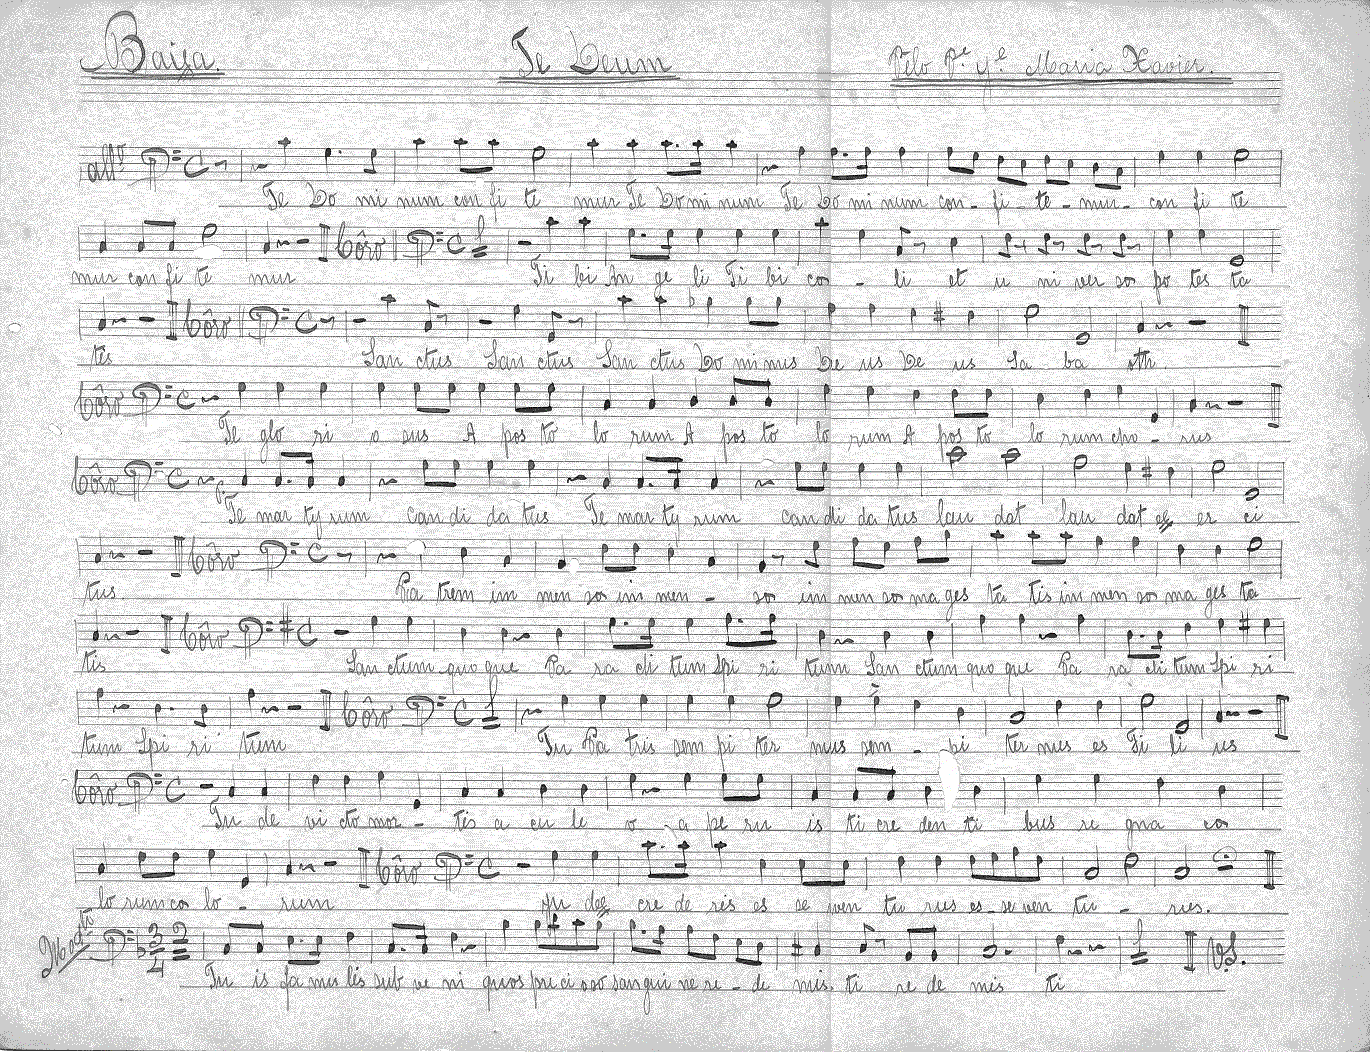 Baixa. Te Deum Pelo Pe. Je. Maria Xavier.
allo
Te Do mi num con fi te mur Te Do mi num Te Do mi num con - fi - te - mur - con fi te
Côro
mur con fi te mur Ti bi An ge li Ti bi coe - li et u ni ver so po tes ta
Côro
tes San ctus San ctus San ctus Do mi nus De us De us Sa ba oth.
Côro
Te glo ri o sus A pos to lo rum A pos to lo rum A pos to lo rum cho - rus
Côro
Te mar ty rum can di da tus Te mar ty rum can di da tus lau dat lau dat er ci
Côro
tus Pa trem im men so im men - so im men so ma ges ta tis im men so ma ges ta
Côro
tis San ctum quo que Pa ra cli tum Spi ri tum San ctum quo que Pa ra cli tum Spi ri
Côro
tum Spi ri tum Tu Pa tris sem pi ter nus sem - pi ter nus es Fi li us
Côro
Tu de vi cto mor - tis a cu le o - a pe ru is ti cre den ti bus re gna coe
Côro
lo rum coe lo - rum Ju dex cre de ris es se ven tu rus es - se ven tu - rus.
3 2
4
V.S.
Tu is fa mu lis sub ve ni quos pre ci oso san gui ne re - de mis ti re de mis ti